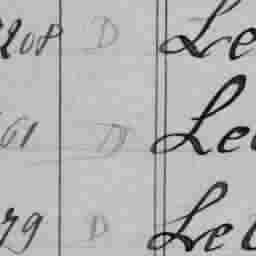 208 D Le
61 D Le
79 D Le